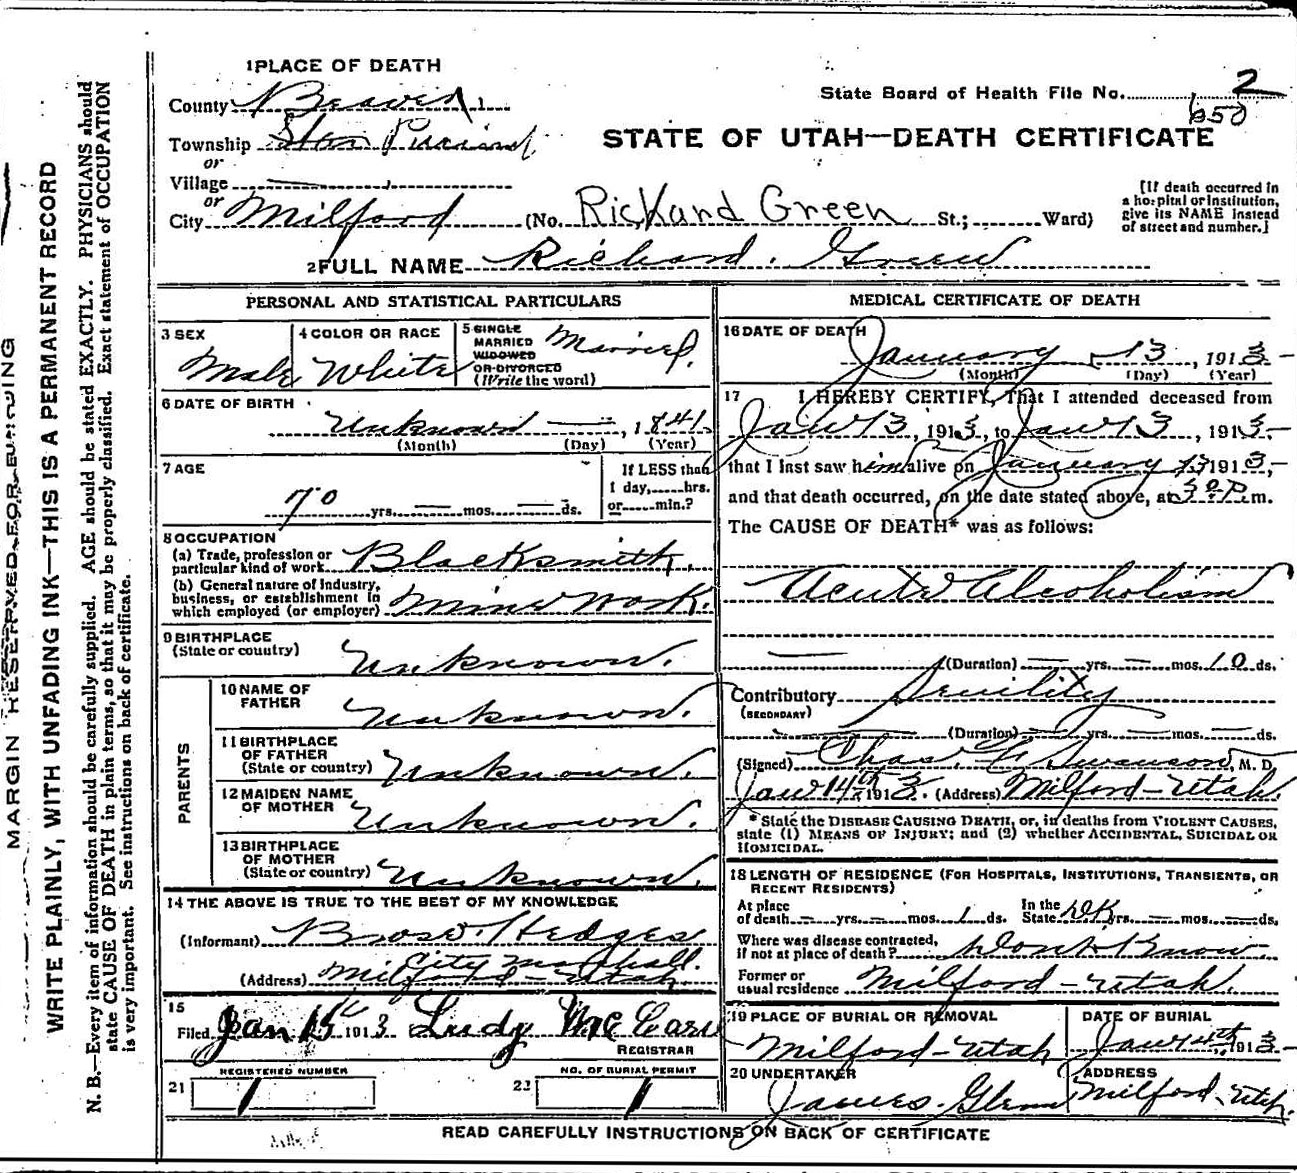 MARGIN RESERVED FOR BINDING
WRITE PLAINLY, WITH UNFADING INK—THIS IS A PERMANENT RECORD
N. B.—Every item of information should be carefully supplied. AGE should be stated EXACTLY. PHYSICIANS should
state CAUSE OF DEATH in plain terms, so that it may be properly classified. Exact statement of OCCUPATION
is very important. See instructions on back of certificate.
1 PLACE OF DEATH
County Beaver
State Board of Health File No. 2
STATE OF UTAH—DEATH CERTIFICATE
Township
or
Village
or
City Milford (No. Richard Green St.; Ward)
[If death occurred in
a hospital or institution,
give its NAME instead
of street and number.]
2 FULL NAME Richard Green
PERSONAL AND STATISTICAL PARTICULARS
3 SEX
Male
4 COLOR OR RACE
White
5 SINGLE
MARRIED
WIDOWED
OR DIVORCED
(Write the word)
Married.
6 DATE OF BIRTH
Unknown — , 1841
(Month) (Day) (Year)
7 AGE
70 yrs. — mos. — ds.
If LESS than
1 day, hrs.
or min.?
8 OCCUPATION
(a) Trade, profession or
particular kind of work Blacksmith.
(b) General nature of Industry,
business, or establishment in
which employed (or employer) Mine Work.
9 BIRTHPLACE
(State or country) Unknown.
PARENTS
10 NAME OF
FATHER Unknown.
11 BIRTHPLACE
OF FATHER
(State or country) Unknown.
12 MAIDEN NAME
OF MOTHER Unknown.
13 BIRTHPLACE
OF MOTHER
(State or country) Unknown.
14 THE ABOVE IS TRUE TO THE BEST OF MY KNOWLEDGE
(Informant) Hedges
City Marshall.
(Address) Milford - Utah
15
Filed Jan 15 1913 Ludy
REGISTRAR
REGISTERED NUMBER
21 1
NO. OF BURIAL PERMIT
22 1
MEDICAL CERTIFICATE OF DEATH
16 DATE OF DEATH
January 13, 1913
(Month) (Day) (Year)
17 I HEREBY CERTIFY, That I attended deceased from
Jan 13, 1913, to Jan 13, 1913,
that I last saw him alive on January 13 1913,
and that death occurred, on the date stated above, at m.
The CAUSE OF DEATH* was as follows:
Acute Alcoholism
— (Duration) — yrs. — mos. 10 ds.
Contributory Senility
(SECONDARY)
(Duration) — yrs. — mos. — ds.
(Signed) Chas. Swanson, M. D.
Jan 14th 1913. (Address) Milford - Utah.
* State the DISEASE CAUSING DEATH, or, in deaths from VIOLENT CAUSES,
state (1) MEANS OF INJURY; and (2) whether ACCIDENTAL, SUICIDAL OR
HOMICIDAL.
18 LENGTH OF RESIDENCE (FOR HOSPITALS, INSTITUTIONS, TRANSIENTS, OR
RECENT RESIDENTS)
At place
of death — yrs. — mos. 1 ds.
In the
State DK yrs. — mos. — ds.
Where was disease contracted,
if not at place of death? Dont Know.
Former or
usual residence Milford - Utah.
19 PLACE OF BURIAL OR REMOVAL
Milford - Utah
DATE OF BURIAL
Jan 14th 1913
20 UNDERTAKER
James Glenn
ADDRESS
Milford, Utah.
READ CAREFULLY INSTRUCTIONS ON BACK OF CERTIFICATE